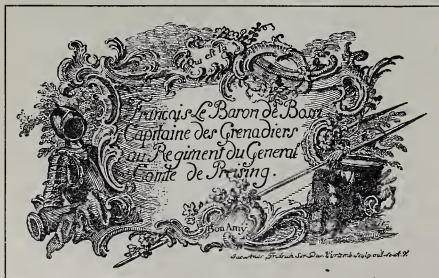 Qui est
François Le Baron de Bassi
Capitaine des Grenadiers
au Regiment du General
Comte de Preising.
Bon Amy